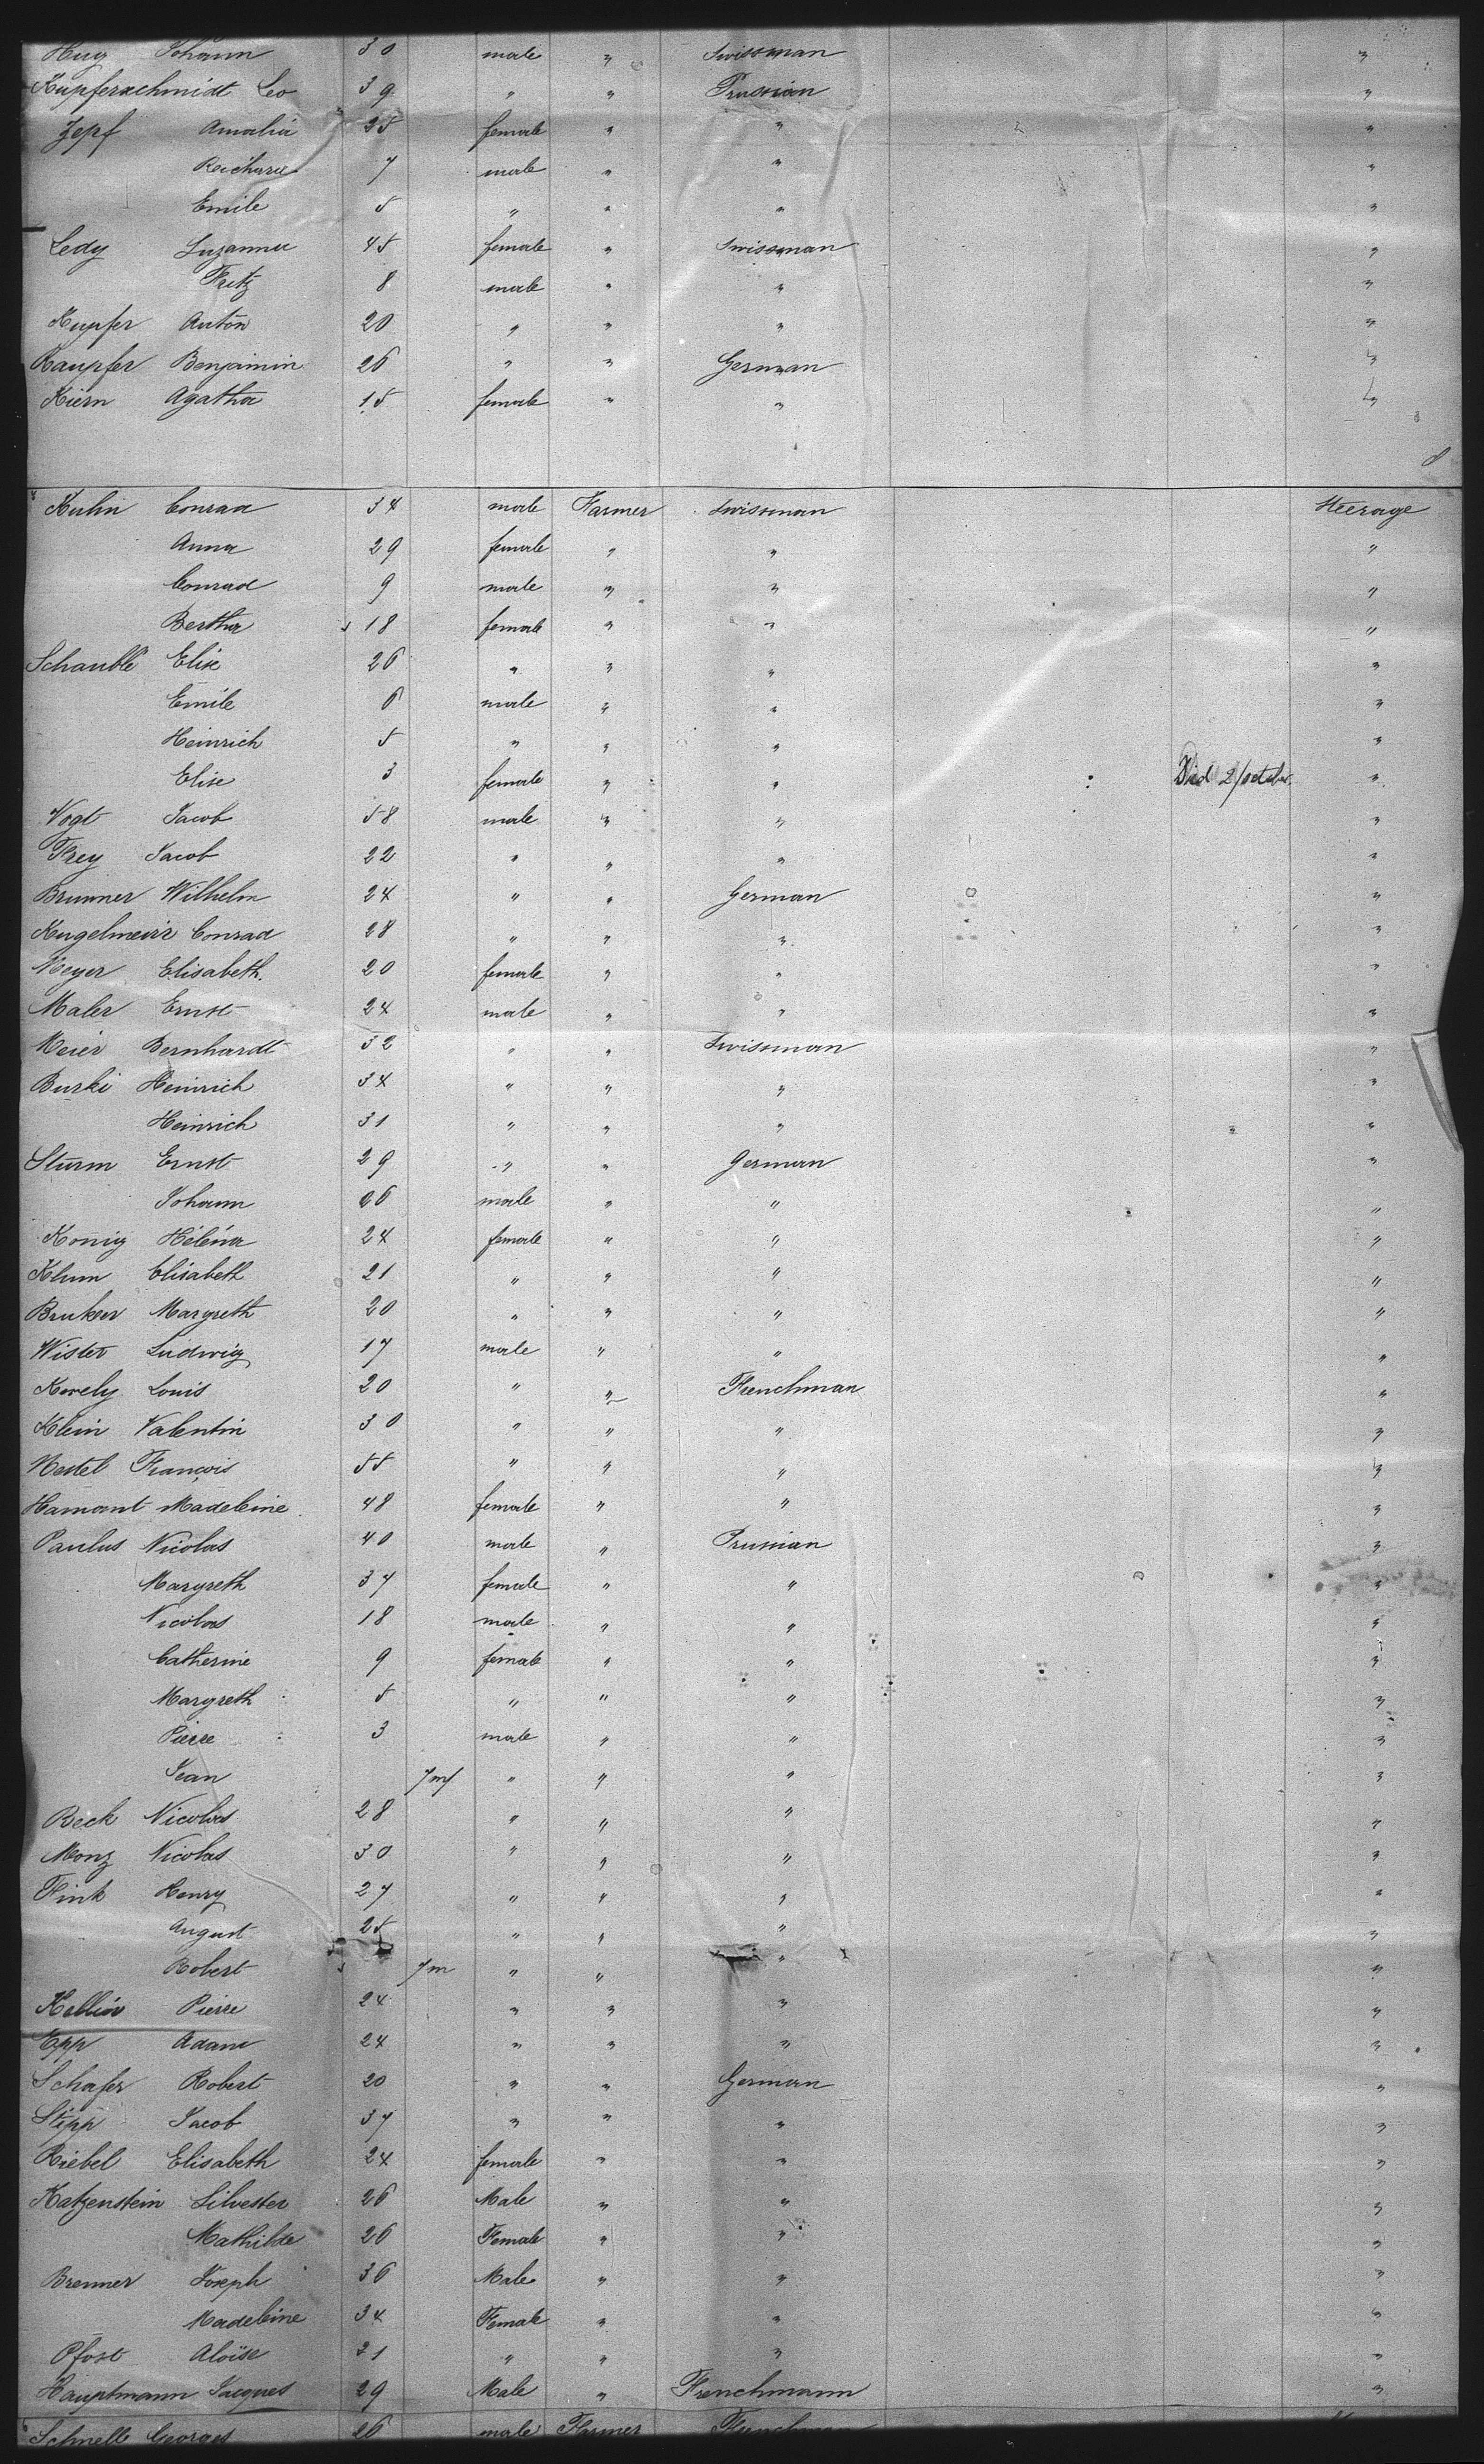 Hug Johann 30 male " Swissman "
Kupferschmidt Leo 39 " " Prussian "
Zepf Amalia 25 female " " "
Reichard 7 male " " "
Emile 5 " " " "
Ledy Suzanna 45 female " Swissman "
Fritz 8 male " " "
Kupfer Anton 20 " " " "
Raupfer Benjamin 26 " " German "
Kiern Agatha 15 female " " "
Kuhn Conrad 34 male Farmer Swissman Steerage
Anna 29 female " " "
Conrad 9 male " " "
Bertha 18 female " " "
Schaublé Elise 26 " " " "
Emile 6 male " " "
Heinrich 5 " " " "
Elise 3 female " " Died 2/october. "
Vogt Jacob 58 male " " "
Frey Jacob 22 " " " "
Brunner Wilhelm 24 " " German "
Kugelmeir Conrad 28 " " " "
Meyer Elisabeth. 20 female " " "
Maler Ernst 24 male " " "
Meier Bernhardt 32 " " Swissman "
Burki Heinrich 34 " " " "
Heinrich 31 " " " "
Sturm Ernst 29 " " German "
Johann 26 male " " "
König Héléna 24 female " " "
Klum Elisabeth 21 " " " "
Bruker Margreth 20 " " " "
Wister Ludwig 17 male " " "
Kevely Louis 20 " " Frenchman "
Klein Valentin 30 " " " "
Mestel François 55 " " " "
Hamant Madeleine 48 female " " "
Paulus Nicolas 40 male " Prussian "
Margreth 37 female " " "
Nicolas 18 male " " "
Catherine 9 female " " "
Margreth 5 " " " "
Pierre 3 male " " "
Jean 7 m/ " " " "
Beck Nicolas 28 " " " "
Monz Nicolas 30 " " " "
Fink Henry 27 " " " "
August 25 " " " "
Robert 7 m " " " "
Pierre 24 " " " "
Epp Adam 24 " " " "
Schafer Robert 20 " " German "
Stipp Jacob 37 " " " "
Riebel Elisabeth 24 female " " "
Katzenstein Silvester 26 Male " " "
Mathilde 26 Female " " "
Brenner Joseph 36 Male " " "
Madeleine 34 Female " " "
Pfost Aloïse 21 " " " "
Hauptmann Jacques 29 Male " Frenchmann "
Schnelle Georges 26 male Farmer